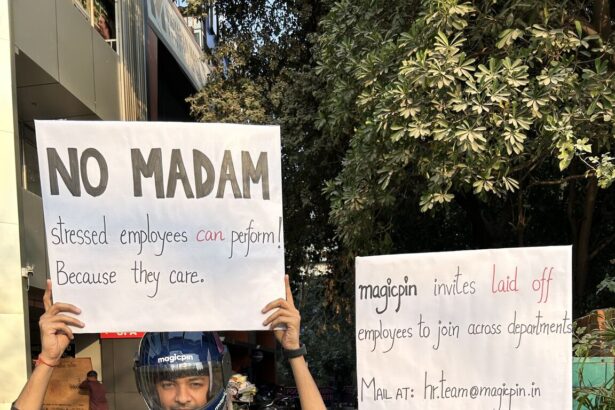 NO MADAM
stressed employees can perform!
Because they care.
magicpin invites laid off
employees to join across departments
MAIL AT: hr.team@magicpin.in
magicpin